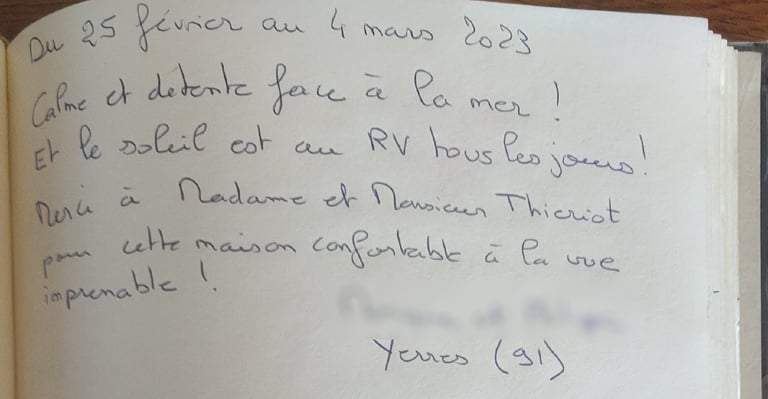 Du 25 février au 4 mars 2023
Calme et détente face à la mer !
Et le soleil est au RV tous les jours !
Merci à Madame et Monsieur Thieriot
pour cette maison confortable à la vue
imprenable !
Yerres (91)